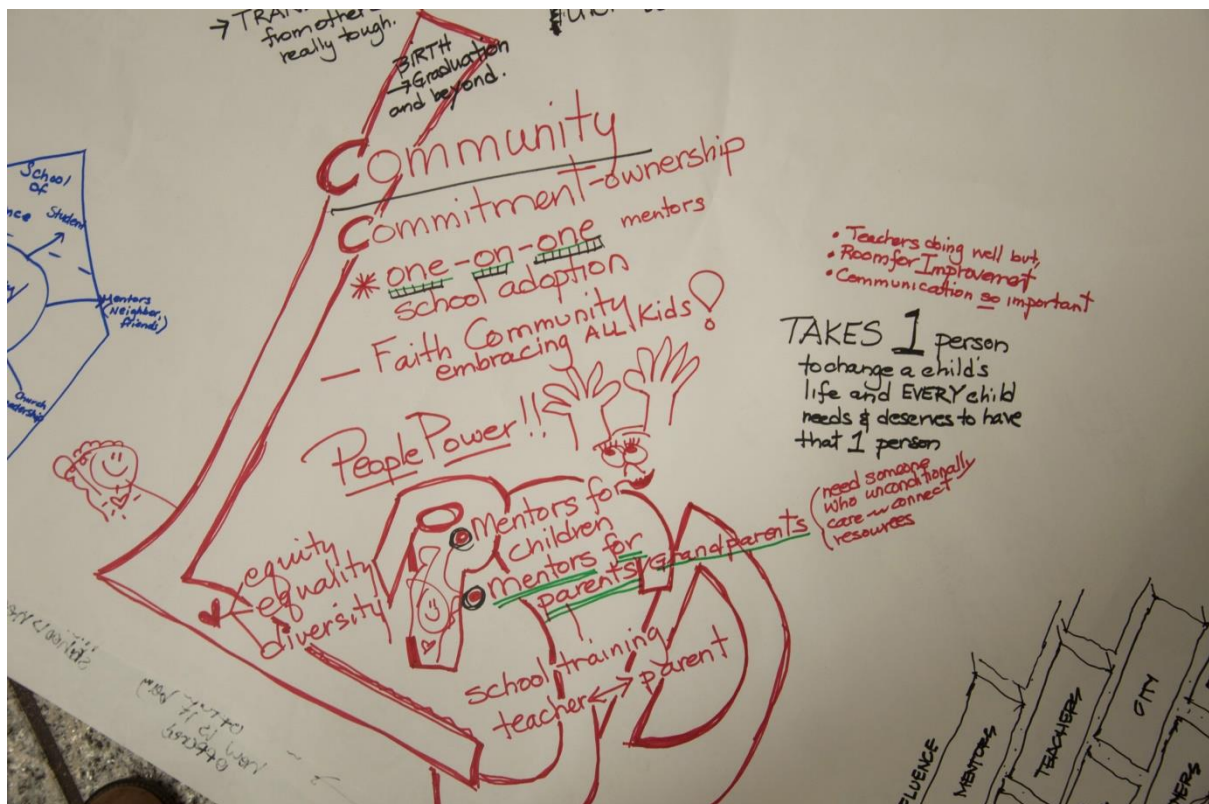 → TRAN
from other
really tough.
BIRTH
→ Graduation
and beyond.
Community
Commitment-ownership
* one-on-one mentors
school adoption
— Faith Community
embracing ALL Kids!
People Power!!
Mentors for
children
mentors for
parents/Grandparents
(need someone
who unconditionally
care ~ connect
resources
equity
equality
diversity
school training
teacher ↔ parent
• Teachers doing well but,
• Room for Improvemet
• Communication so important
TAKES 1 person
to change a child's
life and EVERY child
needs & deserves to have
that 1 person
School
of
Student
Mentors
(Neighbor,
friends)
Church
FLUENCE
MENTORS
TEACHERS
CITY